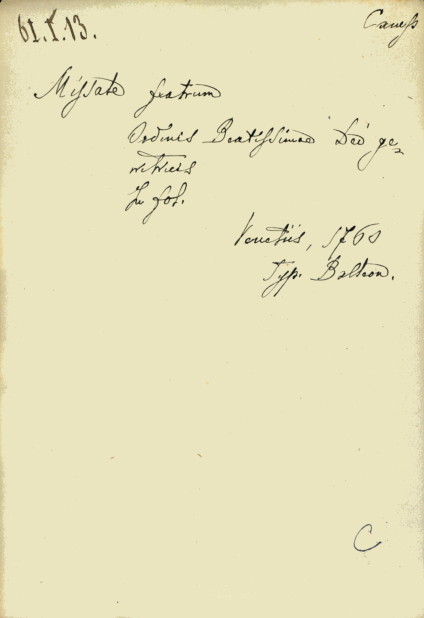 61.I.13.
Missale fratrum
Ordinis Beatissimae Dei ge-
nitricis
In fol.
Venetiis, 1760
Typ. Balleon.
C